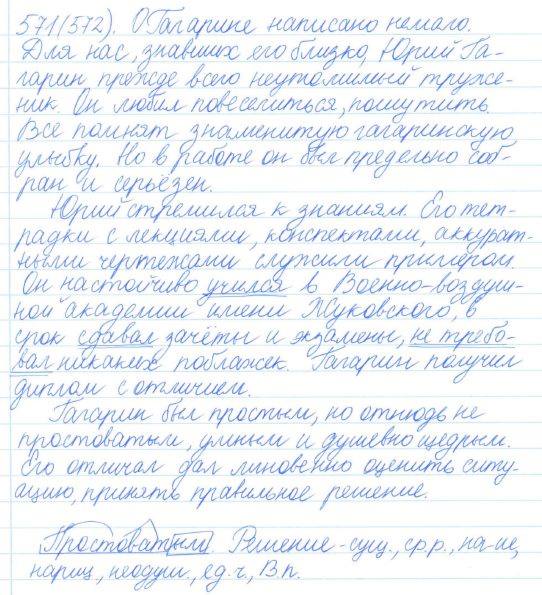 571(572). О Гагарине написано немало.
Для нас, знавших его близко, Юрий Га-
гарин прежде всего неутомимый труже-
ник. Он любил повеселиться, пошутить.
Все помнят знаменитую гагаринскую
улыбку. Но в работе он был предельно соб-
ран и серьёзен.
Юрий стремился к знаниям. Его тет-
радки с лекциями, конспектами, аккурат-
ными чертежами служили примером.
Он настойчиво учился в Военно-воздуш-
ной академии имени Жуковского, в
срок сдавал зачёты и экзамены, не требо-
вал никаких поблажек. Гагарин получил
диплом с отличием.
Гагарин был простым, но отнюдь не
простоватым, умным и душевно щедрым.
Его отличал дал мгновенно оценить ситу-
ацию, принять правильное решение.
Простоватым. Решение - сущ., ср.р., на -ие,
нариц., неодуш., ед.ч., В.п.